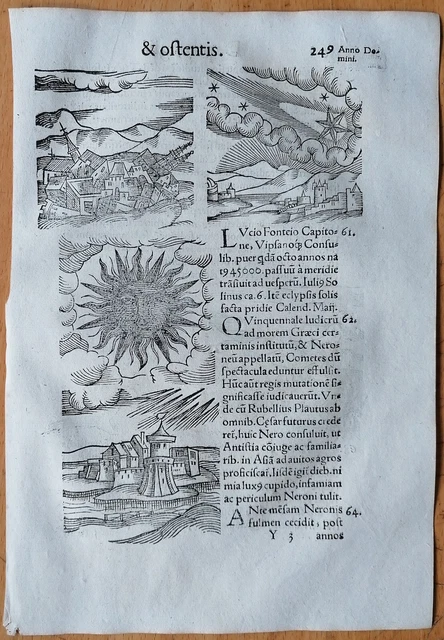 & oſtentis.
249 Anno Do-
mini.
LVcio Fonteio Capito- 61.
ne, Vipſanoq; Conſu-
lib. puer qdā octo annos na
19 45000. paſſuū à meridie
trāſiuit ad ueſperū. Iuli9 So
linus ca. 6. Itē eclypſis ſolis
facta pridie Calend. Maij.
QVinquennale ludicrū 62.
ad morem Græci cer-
taminis inſtitutū, & Nero-
neū appellatū, Cometes dū
ſpectacula eduntur effulſit.
Hūc aut regis mutationē ſi-
gnificaſſe iudicauerūt. Vn-
de cū Rubellius Plautus ab
omnib. Ceſar futurus crede
reť, huic Nero conſuluit, ut
Antiſtia cōiuge ac familia-
rib. in Aſiā ad auitos agros
proficiſcať. Iiſdē igiť dieb. ni
mia lux9 cupido, infamiam
ac periculum Neroni tulit.
ANte mēſam Neronis 64.
fulmen cecidit, poſt
Y 3 annos